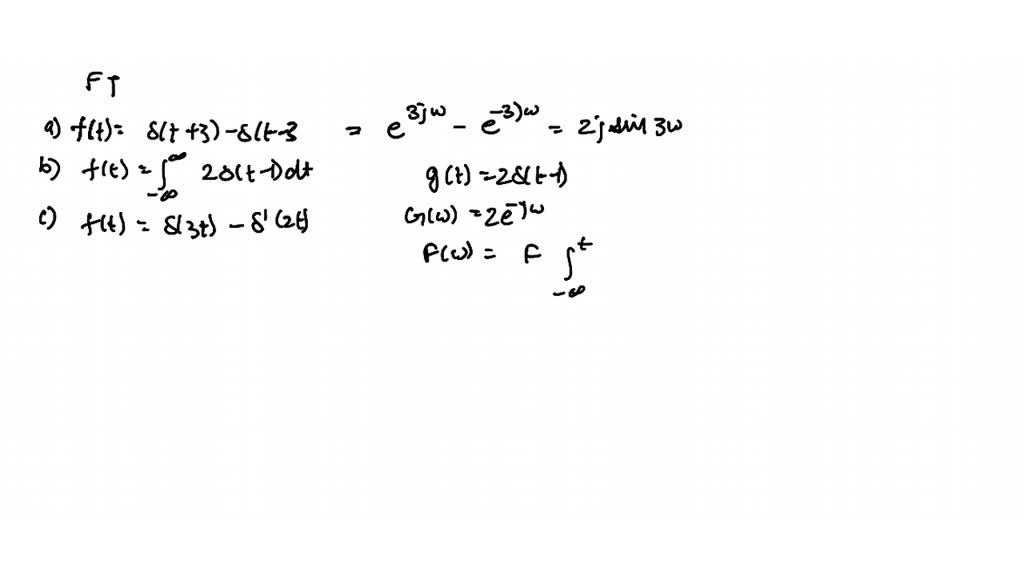 FT
a) f(t)= δ(t+3)-δ(t-3 = e^{3jω} - e^{-3jω} = 2j sin 3ω
b) f(t) = ∫_{-∞}^{∞} 2δ(t-1)dt g(t)=2δ(t-1)
c) f(t) = δ(3t) - δ'(2t) G(ω)=2e^{-jω}
F(ω) = F ∫_{-∞}^{t}